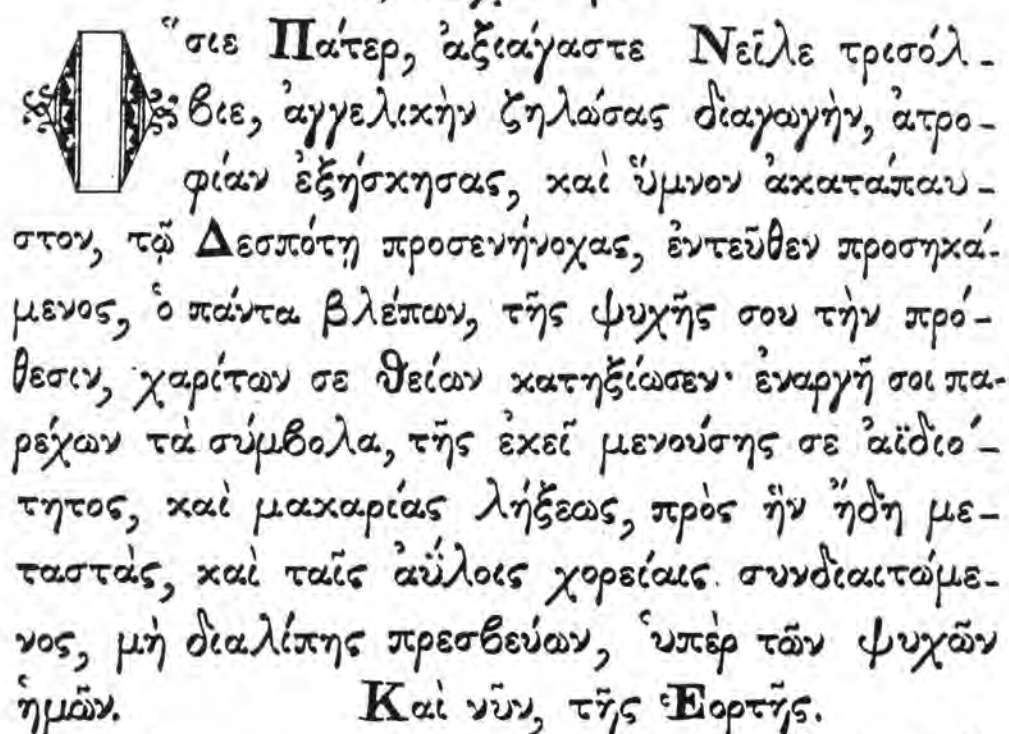 Ὅσιε Πάτερ, ἀξιάγαστε Νεῖλε τρισόλ-
βιε, ἀγγελικὴν ζηλώσας διαγωγὴν, ἀτρο-
φίαν ἐξήσκησας, καὶ ὕμνον ἀκατάπαυ-
στον, τῷ Δεσπότῃ προσενήνοχας, ἐντεῦθεν προσηκά-
μενος, ὁ πάντα βλέπων, τῆς ψυχῆς σου τὴν πρό-
θεσιν, χαρίτων σε θείων κατηξίωσεν· ἐναργῆ σοι πα-
ρέχων τὰ σύμβολα, τῆς ἐκεῖ μενούσης σε ἀϊδιό-
τητος, καὶ μακαρίας λήξεως, πρὸς ἣν ἤδη με-
ταστὰς, καὶ ταῖς ἀΰλοις χορείαις συνδιαιτώμε-
νος, μὴ διαλίπης πρεσβεύων, ὑπὲρ τῶν ψυχῶν
ἡμῶν. Καὶ νῦν, τῆς Ἑορτῆς.